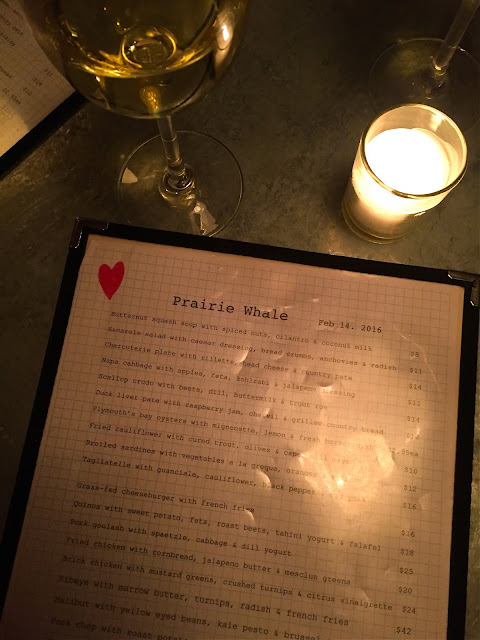 Prairie Whale
Feb 14. 2016
Butternut squash soup with spiced nuts, cilantro & coconut milk $8
salad with caesar dressing, bread crumbs, anchovies & radish $11
Charcuterie plate with rillette, head cheese & country pate $14
Napa cabbage with apples, feta, & jalapeno dressing
Scallop crudo with beets, dill, buttermilk & trout roe $14
Duck liver pate with raspberry jam, & grilled country bread
Plymouth's bay oysters with mignonette, lemon & fresh
Fried cauliflower with cured trout, olives & $10
Broiled sardines with vegetables a la greque, $12
Tagliatelle with guanciale, cauliflower, black pepper $16
Grass-fed cheeseburger with french fries $16
Quinoa with sweet potato, feta, roast beets, tahini yogurt & falafel $18
Duck goulash with spaetzle, cabbage & dill yogurt $25
Fried chicken with cornbread, jalapeno butter & mesclun greens $20
Brick chicken with mustard greens, crushed turnips & citrus vinaigrette $24
Ribeye with marrow butter, turnips, radish & french fries $42
Halibut with yellow eyed beans, kale pesto &
Pork chop with roast